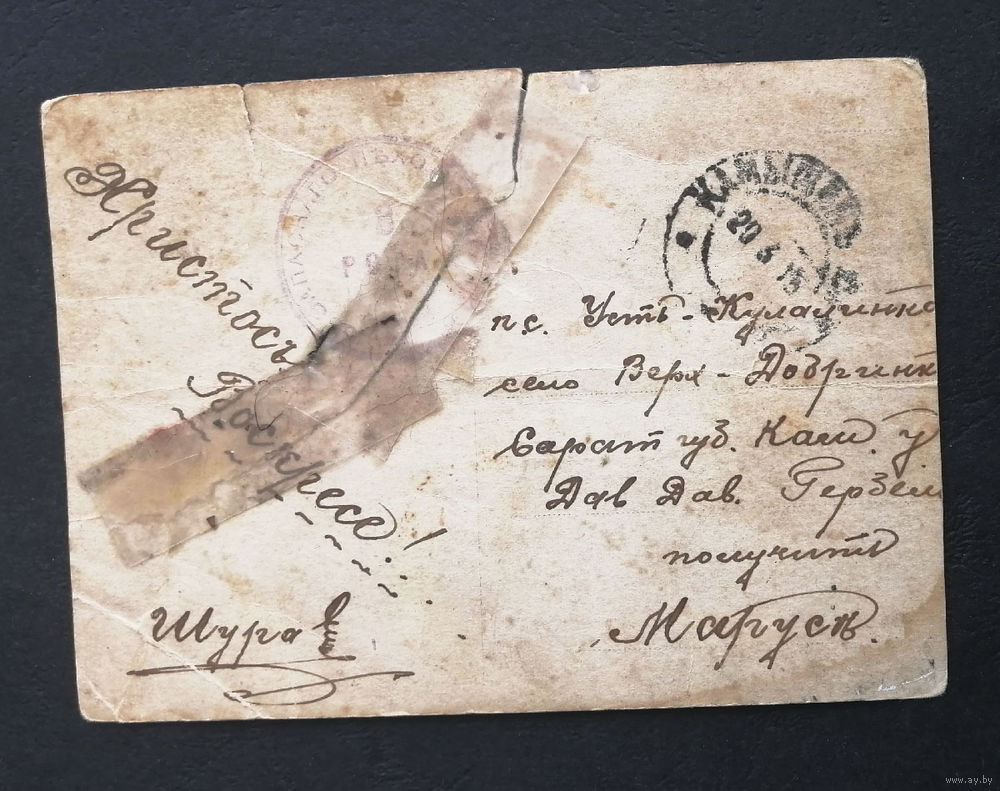 Христосъ
Воскресе!
Шура
КАМЫШИНЪ
20 3 15
п.с. Усть-Кулалинка
село Верх-Добринк
Сарат губ. Кам. у
Дав Дав. Герзен
получить
Марусѣ.
www.ay.by